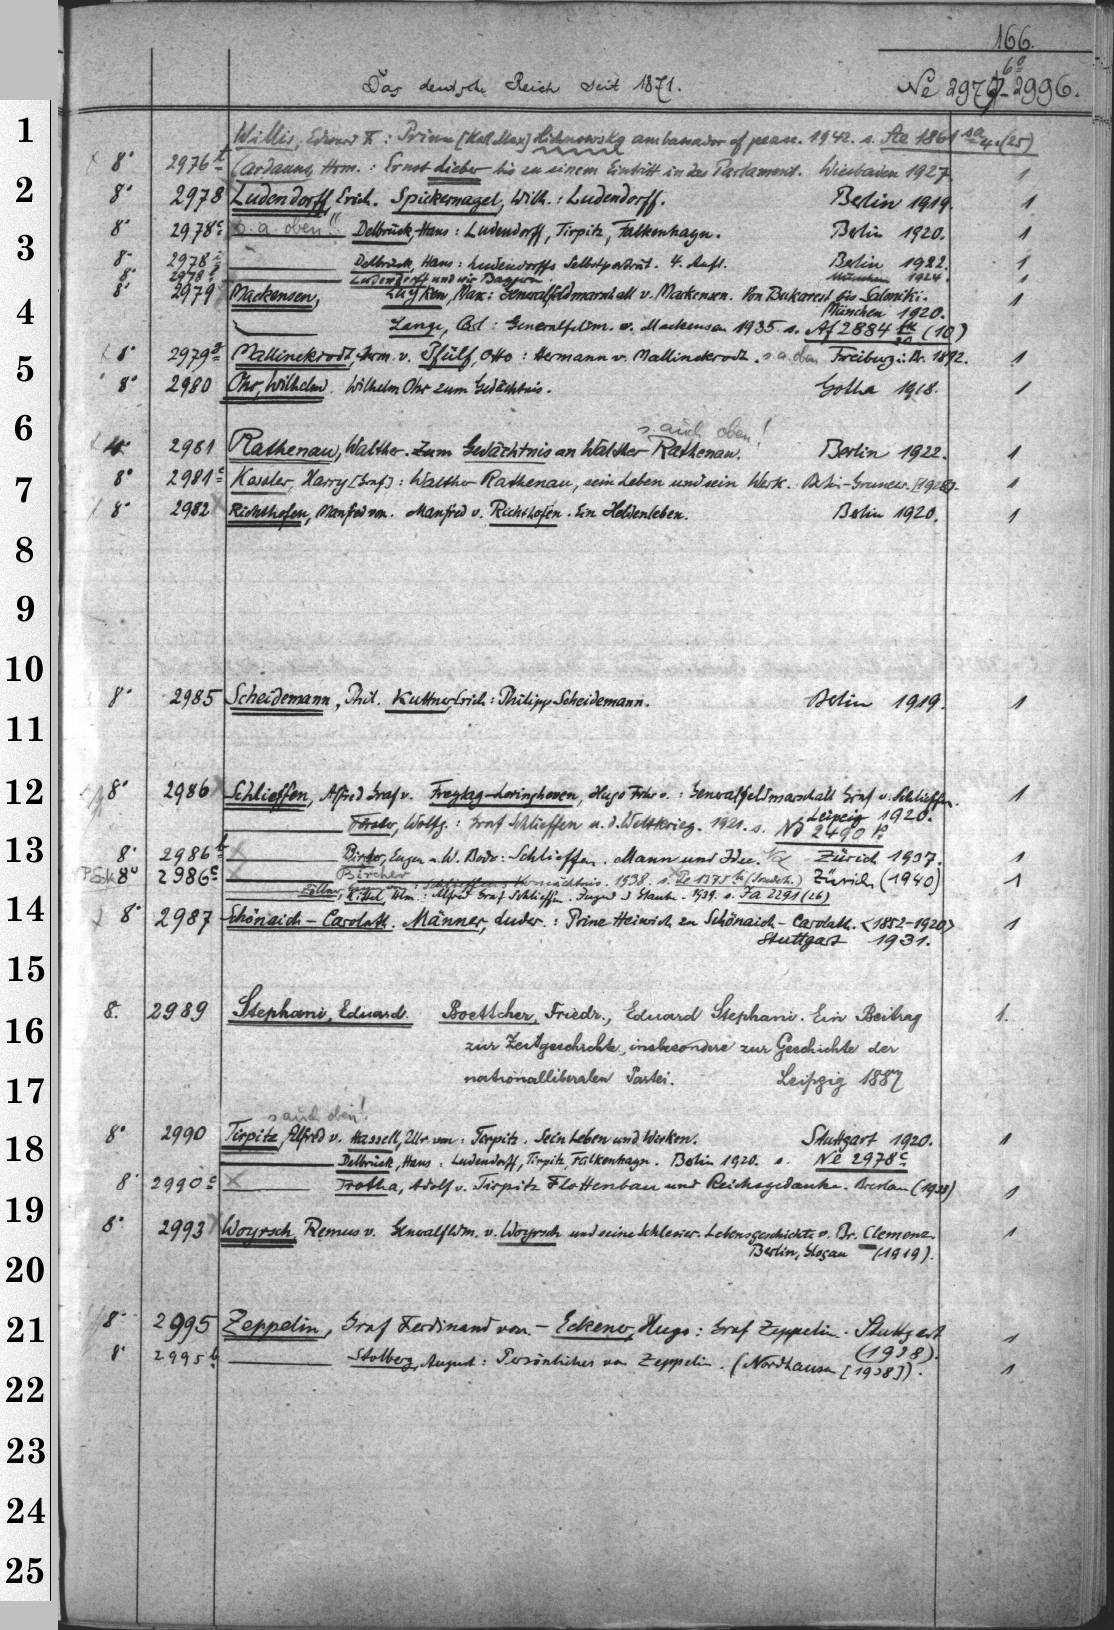 166.
Das deutsche Reich seit 1871.
Ne 2976-2996.
1
Willis, Edward F.: Prince [Karl Max] Lichnowsky ambassador of peace. 1942. s. Ae 1861 (25)
8° 2976 Cardauns, Herm.: Ernst Lieber bis zu seinem Eintritt in das Parlament. Wiesbaden 1927 1
2
8° 2978 Ludendorff, Erich. Spickernagel, Wilh.: Ludendorff. Berlin 1919. 1
8° 2978c s. a. oben!! Delbrück, Hans: Ludendorff, Tirpitz, Falkenhayn. Berlin 1920. 1
3
8° 2978 Delbrück, Hans: Ludendorffs Selbstporträt. 4. Aufl. Berlin 1922. 1
8° 2978 Ludendorff und wir Bayern. München 1924. 1
8° 2979 Mackensen, Luyken, Max: Generalfeldmarschall v. Mackensen. Von Bukarest bis Saloniki. 1
München 1920.
4
Lange, Carl: Generalfeldm. v. Mackensen 1935. s. Af 2884 (10)
8° 2979a Mallinckrodt, Herm. v. Pfülf, Otto: Hermann v. Mallinckrodt. s. a. oben Freiburg i. Br. 1892. 1
5
8° 2980 Ohr, Wilhelm. Wilhelm Ohr zum Gedächtnis. Gotha 1918. 1
6
s. auch oben!
4° 2981 Rathenau, Walther. Zum Gedächtnis an Walther Rathenau. Berlin 1922. 1
8° 2981c Kessler, Harry [Graf]: Walther Rathenau, sein Leben und sein Werk. Berlin-Grunew. [1928]. 1
7
8° 2982 Richthofen, Manfred von. Manfred v. Richthofen. Ein Heldenleben. Berlin 1920. 1
8
9
10
8° 2985 Scheidemann, Phil. Kuttner, Erich: Philipp Scheidemann. Berlin 1919. 1
11
12
8° 2986 Schlieffen, Alfred Graf v. Freytag-Loringhoven, Hugo Frhr v.: Generalfeldmarschall Graf v. Schlieffen. 1
Leipzig 1920.
Förster, Wolfg.: Graf Schlieffen u. d. Weltkrieg. 1921. s. Nd 2490
13
8° 2986b Bircher, Eugen u. W. Bode: Schlieffen. Mann und Idee. Zürich 1937. 1
8° 2986c Bircher Zürich (1940) 1
: Schlieffens Vermächtnis. 1938. s.
Kittel, Wm.: Alfred Graf Schlieffen. Jugend u. Glaube. 1939. s. Fa 2291 (26)
14
8° 2987 Schönaich-Carolath. Männer, Ludw.: Prinz Heinrich zu Schönaich-Carolath. <1852-1920> 1
Stuttgart 1931.
15
8. 2989 Stephani, Eduard. Boettcher, Friedr., Eduard Stephani. Ein Beitrag 1.
16
zur Zeitgeschichte, insbesondere zur Geschichte der
17
nationalliberalen Partei. Leipzig 1887
s. auch oben!
18
8° 2990 Tirpitz, Alfred v. Hassell, Ulr. von: Tirpitz. Sein Leben und Wirken. Stuttgart 1920. 1
Delbrück, Hans: Ludendorff, Tirpitz, Falkenhayn. Berlin 1920. s. Ne 2978c
8° 2990c Trotha, Adolf v. Tirpitz Flottenbau und Reichsgedanke. Breslau (1933) 1
19
8° 2993 Woyrsch, Remus v. Generalfeldm. v. Woyrsch und seine Schlesier. Lebensgeschichte v. Br. Clemenz. 1
Berlin, Glogau (1919).
20
21
8° 2995 Zeppelin, Graf Ferdinand von. – Eckener, Hugo: Graf Zeppelin. Stuttgart 1
(1938).
8° 2995b Stolberg, August: Persönliches von Zeppelin. (Nordhausen [1938]). 1
22
23
24
25